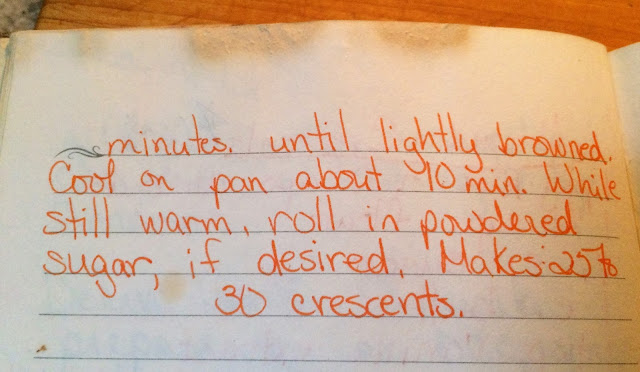 minutes. until lightly browned.
Cool on pan about 10 min. While
still warm, roll in powdered
sugar, if desired. Makes 25 to
30 crescents.